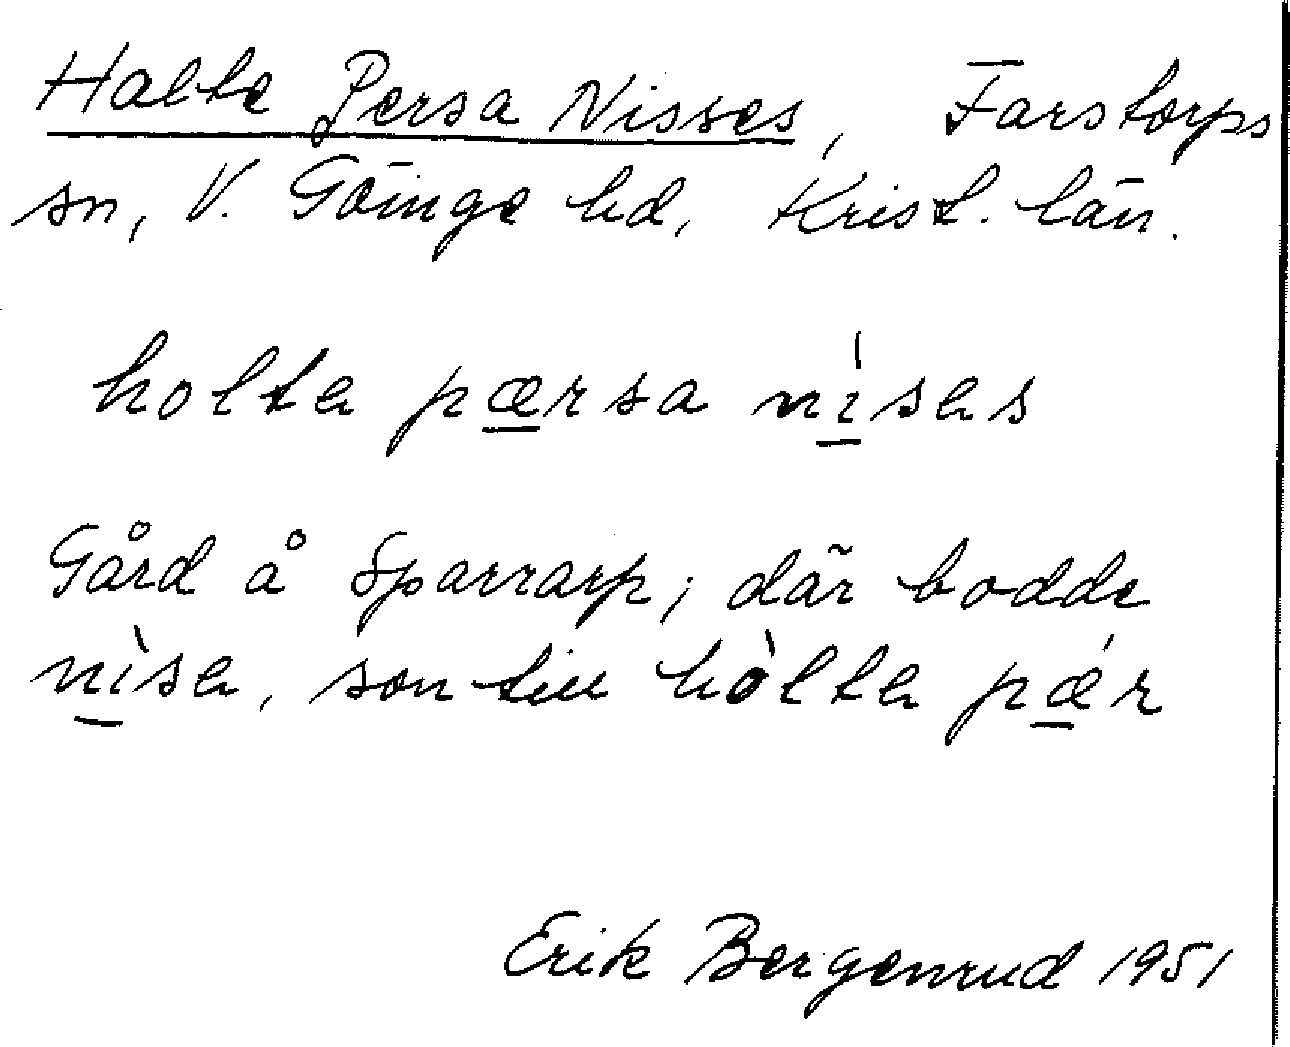 Halte Persa Nisses, Farstorps
sn, V. Göinge hd, Krist. län.
holta pærsa nísas
Gård å Sparrarp; där bodde
nìsa, son till hòlta pǽr
Erik Bergenrud 1951